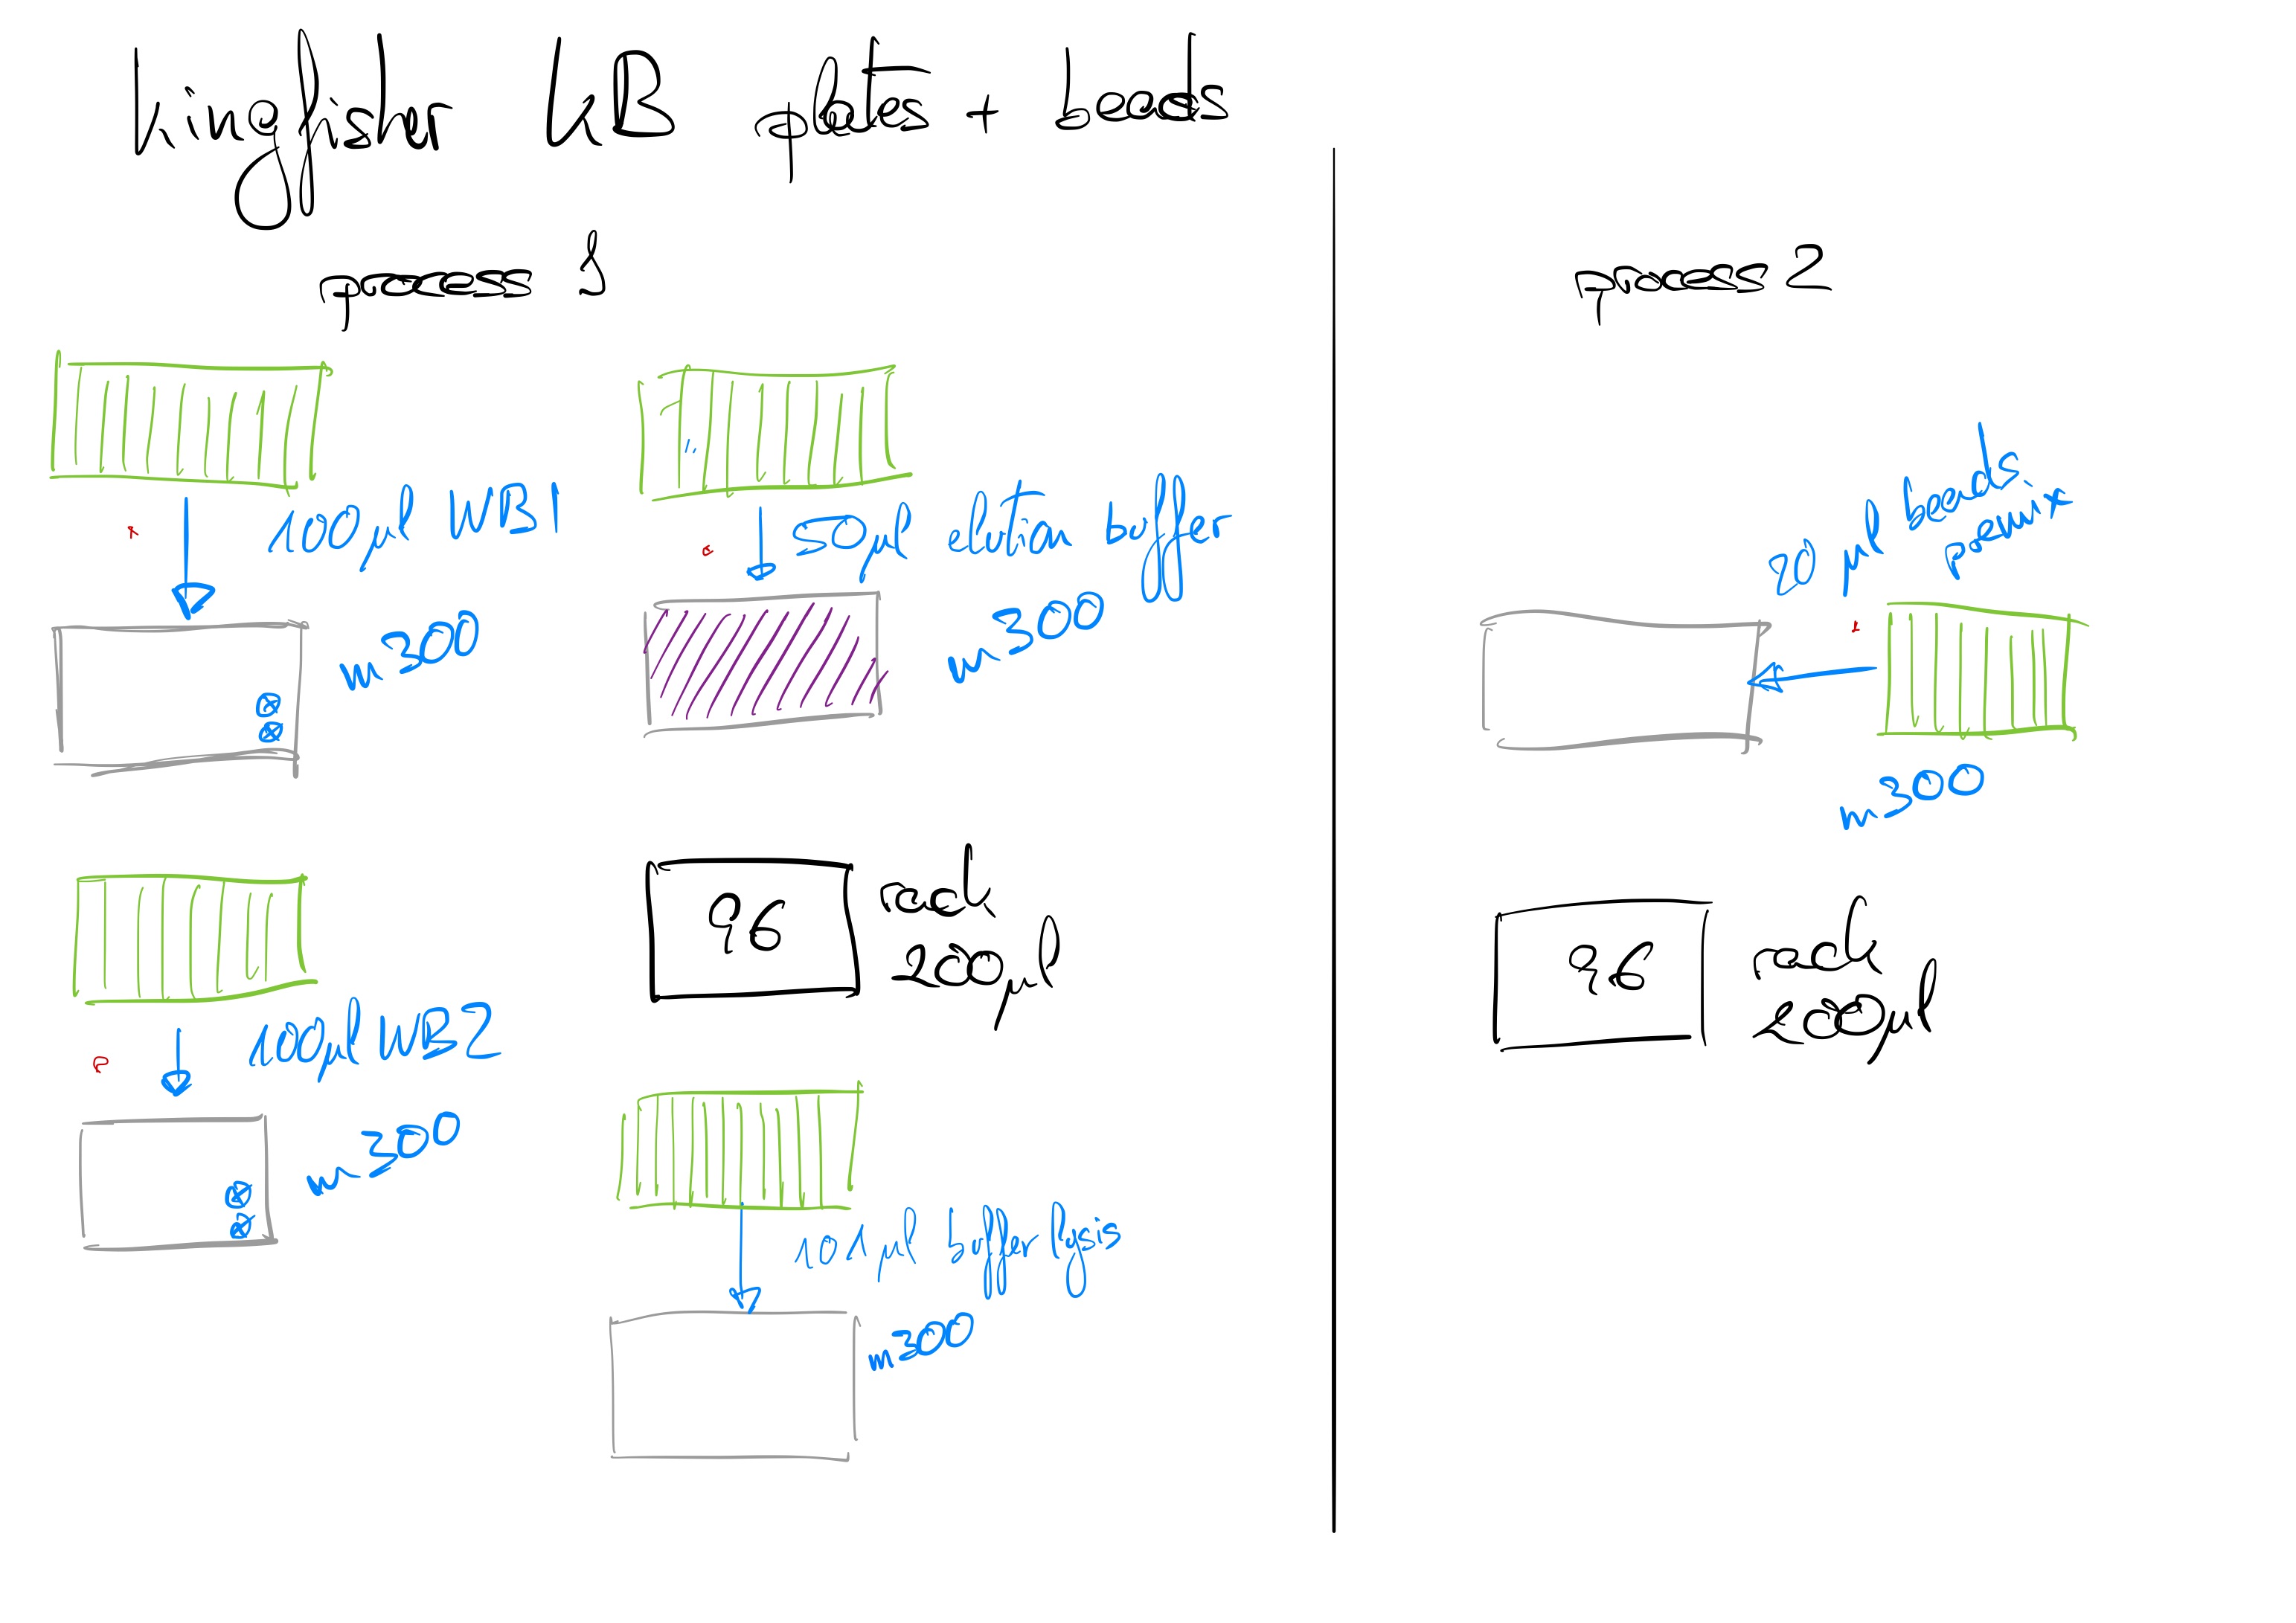 kingfisher KB plates + beads
process 1
100µl WB1
m300
50µl elution buffer
m300
100µl WB2
m300
96
rack
200µl
101µl buffer lysis
m300
process 2
20 µl beads
premix
m300
96
rack
200µl